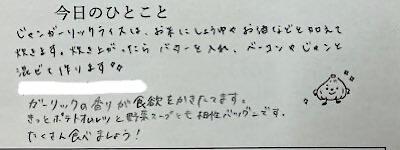 今日のひとこと
じゃんガーリックライスは、お米にしょうゆやお酒などを加えて
炊きます。炊き上がったら バターを入れ、ベーコンやじゃんと
混ぜて作ります♪♪
ガーリックの香りが食欲をかきたてます。
きっとポテトオムレツと野菜スープとも相性バツグンです。
たくさん食べましょう！